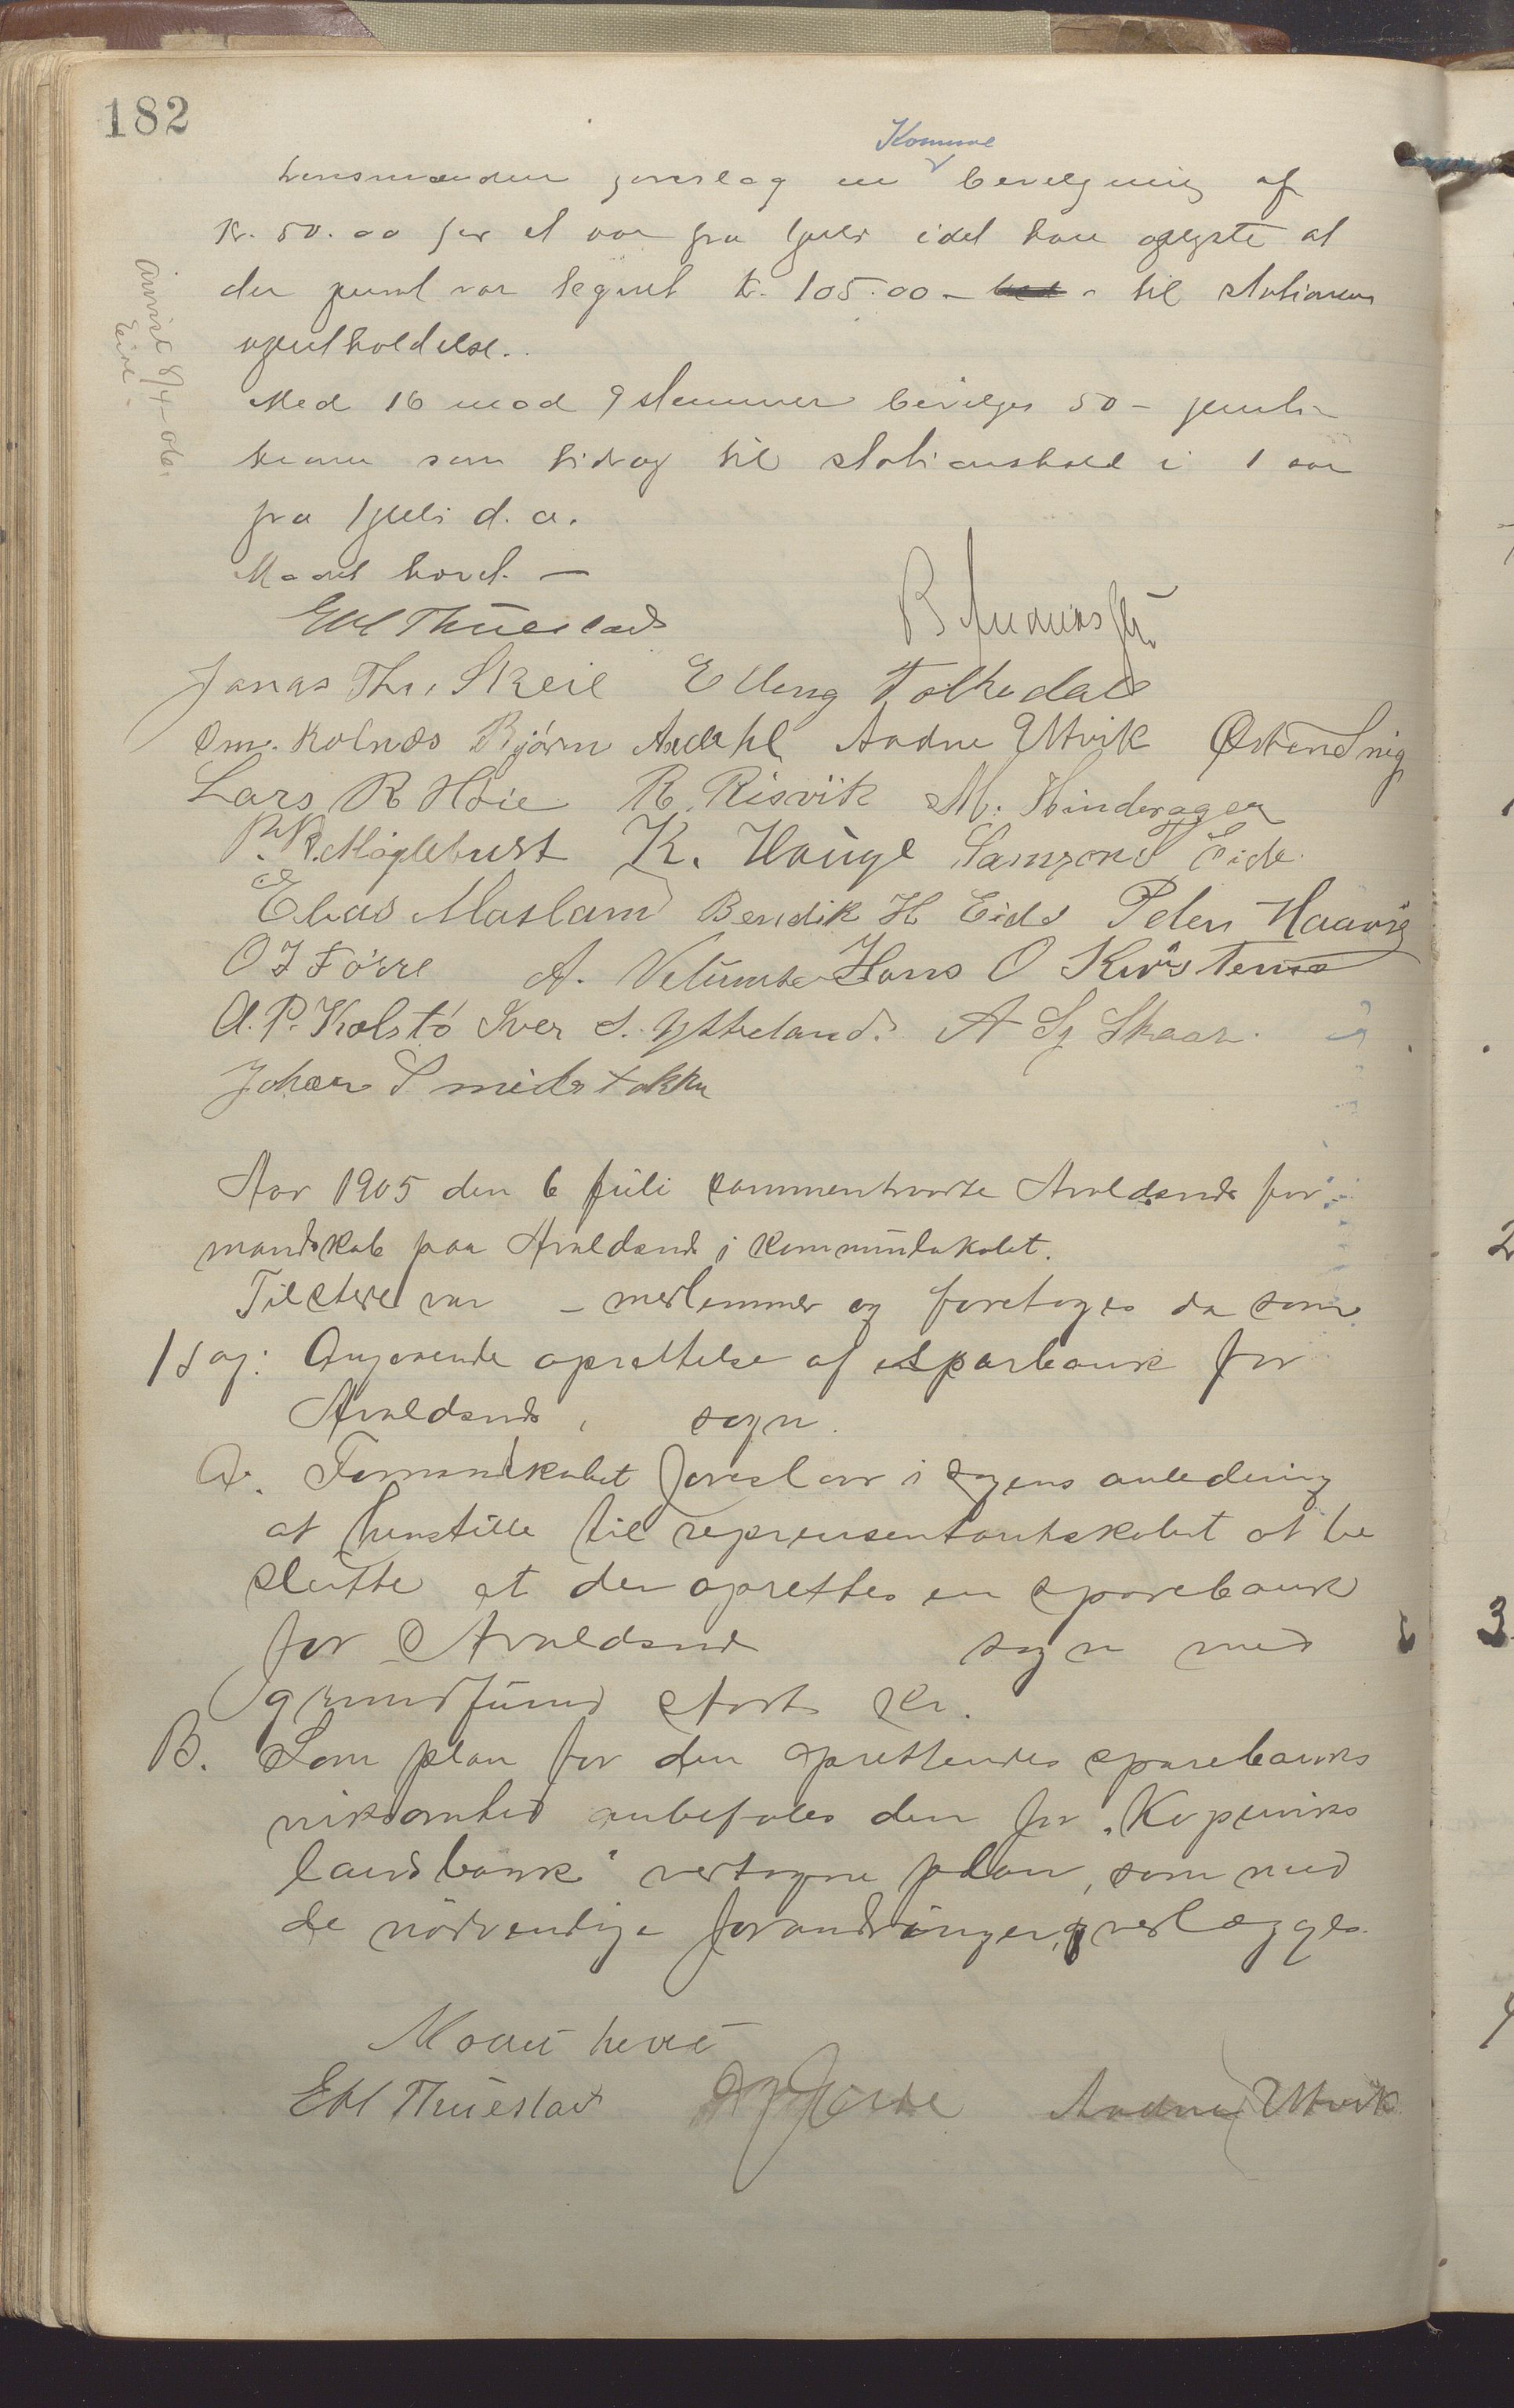 182
Komune
Lensmanden foreslog en bevilgning af
Kr. 50.00 for et aar fra 1 juli idet han oplyste at
der privat var tegnet kr. 105.00 - til stationens
opretholdelse.
Med 16 mod 9 stemmer bevilges 50 - femti -
kroner som bidrag til stationshold i 1 aar
fra 1 juli d. a.
Mødet hævet. —
EM Thuestad
Jonas Thr. Skeie Elling Folkedal
Om. Kolnæs Bjørn Aadahl Aadne Utvik Østen Snig
Lars R Høie R. Risvik M. Hinderager
P. R. Møglebust K. Hauge Samson T Eide
Elias Masland Bendik H Eide Peder Haavig
O J Førre A. Velumb Hans O Kvistenes
A. P. Kolstø Iver S. Ytreland A Sj Skaar
Johan Smidstokke
Aar 1905 den 6 juli sammentraadte Avaldsnes for
mandskab paa Avaldsnes i kommunelokalet.
Tilstede var – medlemmer og foretoges da som
1 sag: Angaaende oprettelse af Sparbank for
Avaldsnes, sogn.
A. Formandskabet foreslaar i sagens anledning
at henstille til repræsentantskabet at be
slutte at der oprettes en sparebank
for Avaldsnes sogn med
grundfund stort kr.
B. Som plan for den oprettendes sparebanks
virksomhed anbefales den for „Kopervik
landbank" vedtagne plan, som med
de nødvendige forandringer vedlægges.
Mødet hævet
EM Thuestad Aadne Utvik